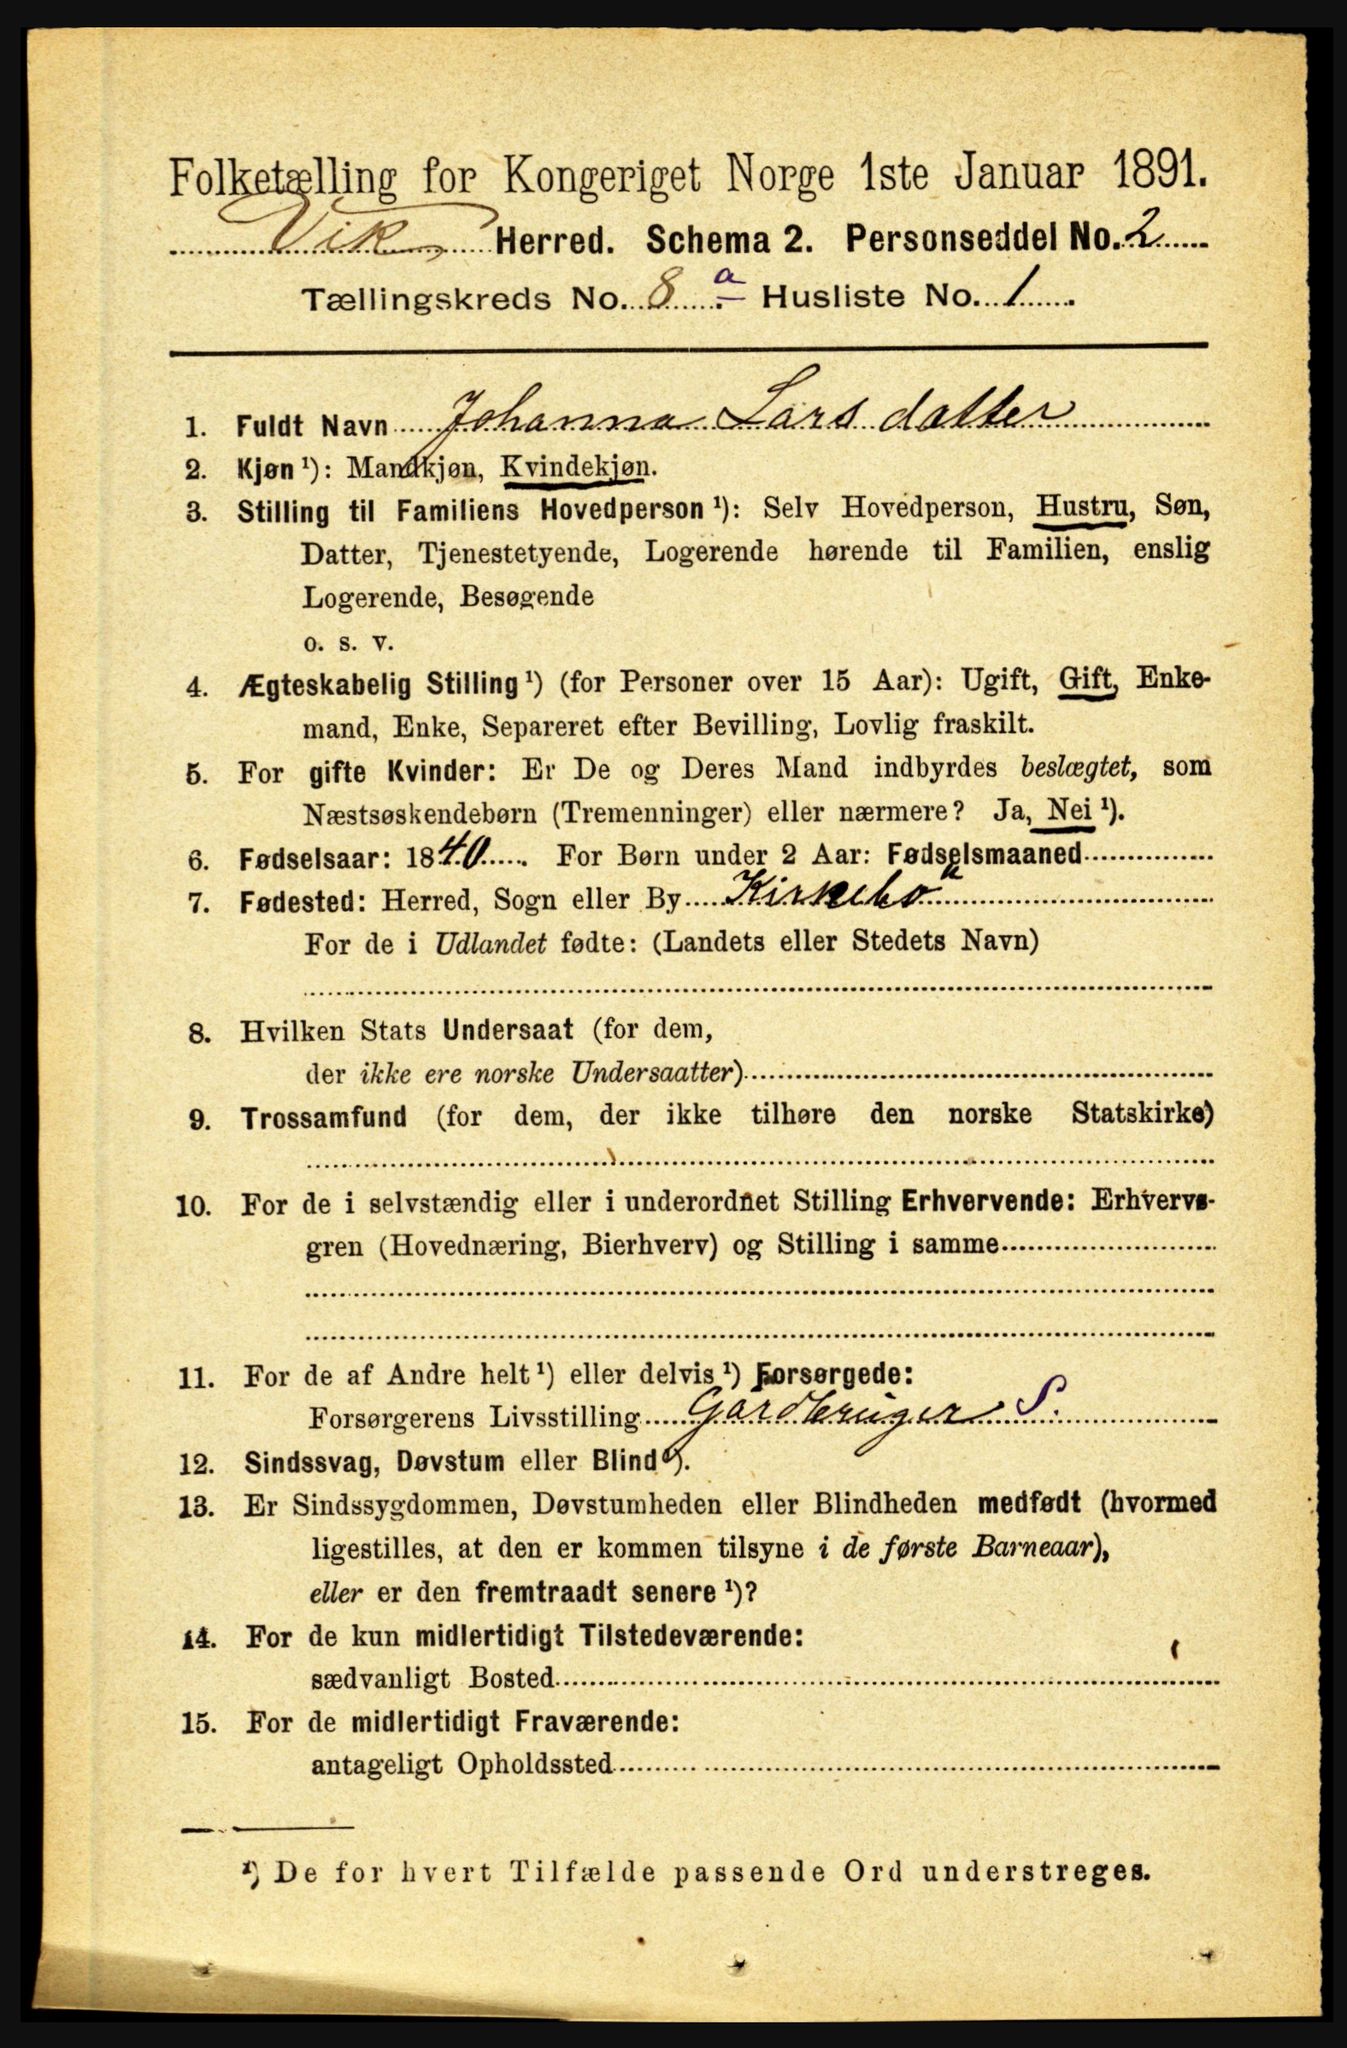 Folketælling for Kongeriget Norge 1ste Januar 1891.
Vik Herred. Schema 2. Personseddel No. 2
Tællingskreds No. 8 a Husliste No. 1
1. Fuldt Navn Johanna Larsdatter
2. Kjøn ¹): Mandkjøn, Kvindekjøn.
3. Stilling til Familiens Hovedperson ¹): Selv Hovedperson, Hustru, Søn,
Datter, Tjenestetyende, Logerende hørende til Familien, enslig
Logerende, Besøgende
o. s. v.
4. Ægteskabelig Stilling ¹) (for Personer over 15 Aar): Ugift, Gift, Enke-
mand, Enke, Separeret efter Bevilling, Lovlig fraskilt.
5. For gifte Kvinder: Er De og Deres Mand indbyrdes beslægtet, som
Næstsøskendebørn (Tremenninger) eller nærmere? Ja, Nei ¹).
6. Fødselsaar: 1840. For Børn under 2 Aar: Fødselsmaaned
7. Fødested: Herred, Sogn eller By Kirkebo
For de i Udlandet fødte: (Landets eller Stedets Navn)
8. Hvilken Stats Undersaat (for dem,
der ikke ere norske Undersaatter)
9. Trossamfund (for dem, der ikke tilhøre den norske Statskirke)
10. For de i selvstændig eller i underordnet Stilling Erhvervende: Erhvervs-
gren (Hovednæring, Bierhverv) og Stilling i samme
11. For de af Andre helt ¹) eller delvis ¹) Forsørgede:
Forsørgerens Livsstilling Gardbruger S.
12. Sindssvag, Døvstum eller Blind ¹).
13. Er Sindssygdommen, Døvstumheden eller Blindheden medfødt (hvormed
ligestilles, at den er kommen tilsyne i de første Barneaar),
eller er den fremtraadt senere ¹)?
14. For de kun midlertidigt Tilstedeværende:
sædvanligt Bosted
15. For de midlertidigt Fraværende:
antageligt Opholdssted
¹) De for hvert Tilfælde passende Ord understreges.